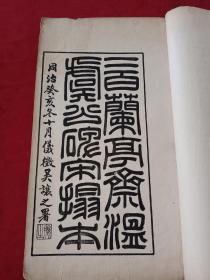 二百蘭亭齋溫
虞公碑宋搨本
同治癸亥冬十月儀徵吳讓之署